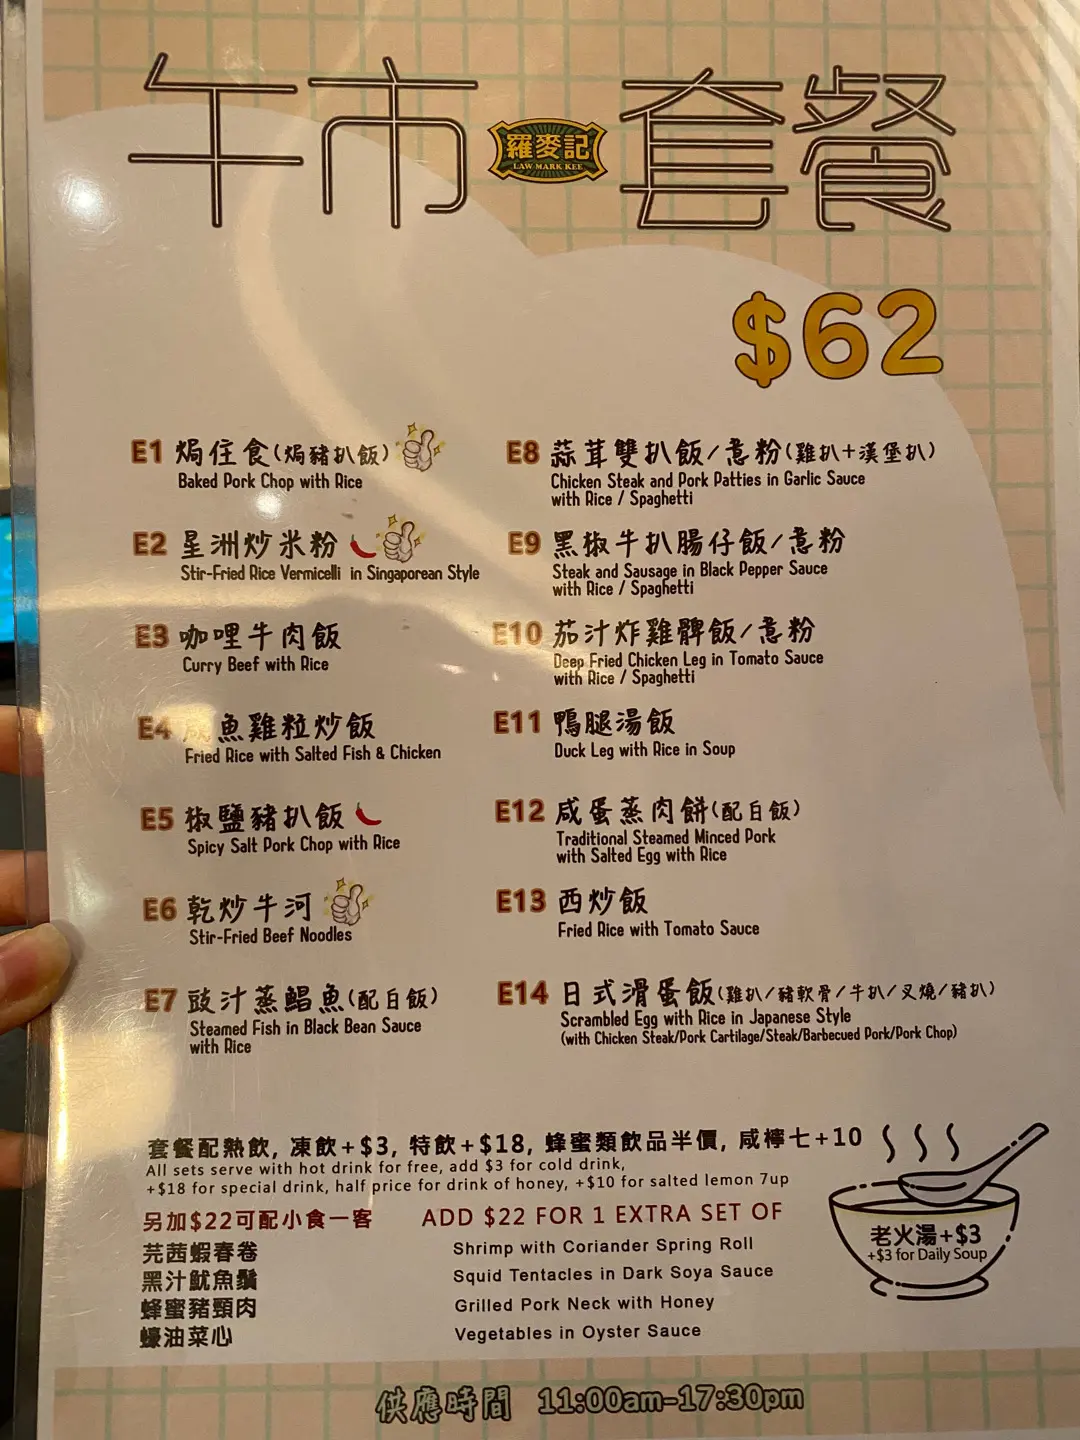 午市 套餐
羅麥記
LAW MARK KEE
$62
E1 焗住食(焗豬扒飯)
Baked Pork Chop with Rice
E2 星洲炒米粉
Stir-Fried Rice Vermicelli in Singaporean Style
E3 咖哩牛肉飯
Curry Beef with Rice
E4 魚雞粒炒飯
Fried Rice with Salted Fish & Chicken
E5 椒鹽豬扒飯
Spicy Salt Pork Chop with Rice
E6 乾炒牛河
Stir-Fried Beef Noodles
E7 豉汁蒸鯧魚(配白飯)
Steamed Fish in Black Bean Sauce
with Rice
E8 蒜茸雙扒飯/意粉(雞扒+漢堡扒)
Chicken Steak and Pork Patties in Garlic Sauce
with Rice / Spaghetti
E9 黑椒牛扒腸仔飯/意粉
Steak and Sausage in Black Pepper Sauce
with Rice / Spaghetti
E10 茄汁炸雞髀飯/意粉
Deep Fried Chicken Leg in Tomato Sauce
with Rice / Spaghetti
E11 鴨腿湯飯
Duck Leg with Rice in Soup
E12 咸蛋蒸肉餅(配白飯)
Traditional Steamed Minced Pork
with Salted Egg with Rice
E13 西炒飯
Fried Rice with Tomato Sauce
E14 日式滑蛋飯(雞扒/豬軟骨/牛扒/叉燒/豬扒)
Scrambled Egg with Rice in Japanese Style
(with Chicken Steak/Pork Cartilage/Steak/Barbecued Pork/Pork Chop)
套餐配熱飲, 凍飲+$3, 特飲+$18, 蜂蜜類飲品半價, 咸檸七+10
All sets serve with hot drink for free, add $3 for cold drink,
+$18 for special drink, half price for drink of honey, +$10 for salted lemon 7up
另加$22可配小食一客 ADD $22 FOR 1 EXTRA SET OF
芫茜蝦春卷 Shrimp with Coriander Spring Roll
黑汁魷魚鬚 Squid Tentacles in Dark Soya Sauce
蜂蜜豬頸肉 Grilled Pork Neck with Honey
蠔油菜心 Vegetables in Oyster Sauce
老火湯+$3
+$3 for Daily Soup
供應時間 11:00am-17:30pm